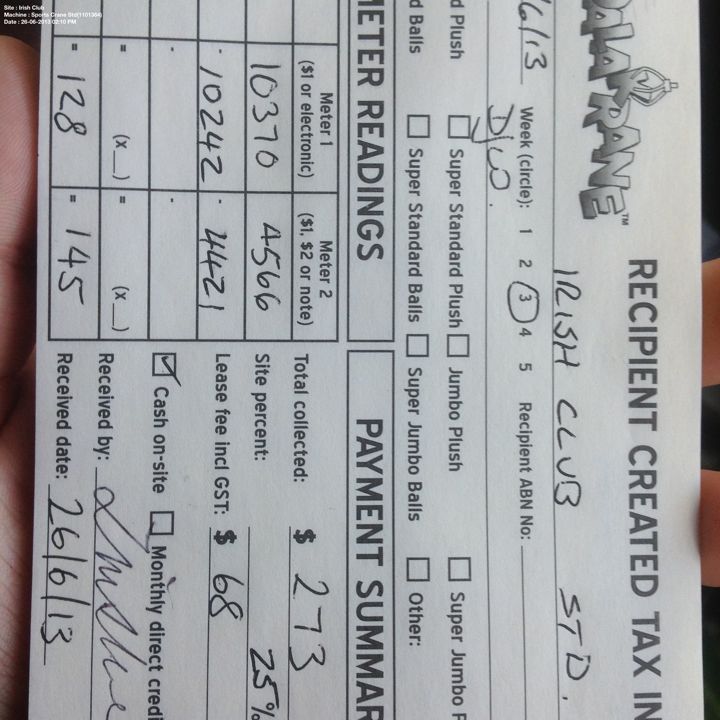 Site : Irish Club
Machine : Sports Crane Std(1101364)
Date : 26-06-2013 02:10 PM
RECIPIENT CREATED TAX IN
IRISH CLUB STD.
6/13 Week (circle): 1 2 3 4 5 Recipient ABN No:
d Plush Super Standard Plush Jumbo Plush Super Jumbo P
d Balls Super Standard Balls Super Jumbo Balls Other:
METER READINGS
Meter 1 Meter 2
($1 or electronic) ($1, $2 or note)
10370 4566
- 10242 - 4421
- -
= (x__) = (x__)
= 128 = 145
PAYMENT SUMMAR
Total collected: $ 273
Site percent: 25%
Lease fee incl GST: $ 68
Cash on-site Monthly direct credi
Received by:
Received date: 26/6/13